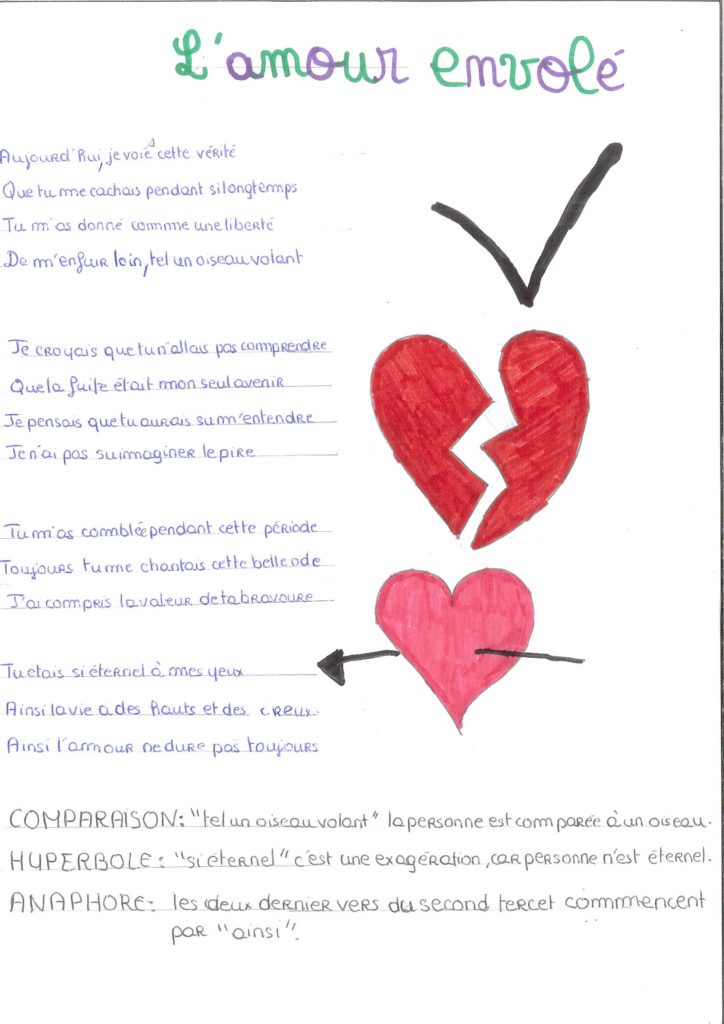 L'amour envolé
Aujourd'hui, je vois cette vérité
Que tu me cachais pendant si longtemps
Tu m'as donné comme une liberté
De m'enfuir loin, tel un oiseau volant
Je croyais que tu n'allais pas comprendre
Que la fuite était mon seul avenir
Je pensais que tu aurais su m'entendre
Je n'ai pas su imaginer le pire
Tu m'as comblée pendant cette période
Toujours tu me chantais cette belle ode
J'ai compris la valeur de ta bravoure
Tu etais si éternel à mes yeux
Ainsi la vie a des hauts et des creux.
Ainsi l'amour ne dure pas toujours
COMPARAISON: "tel un oiseau volant" la personne est comparée à un oiseau.
HYPERBOLE: "si éternel" c'est une exagération, car personne n'est éternel.
ANAPHORE: les deux dernier vers du second tercet commmencent
par "ainsi".